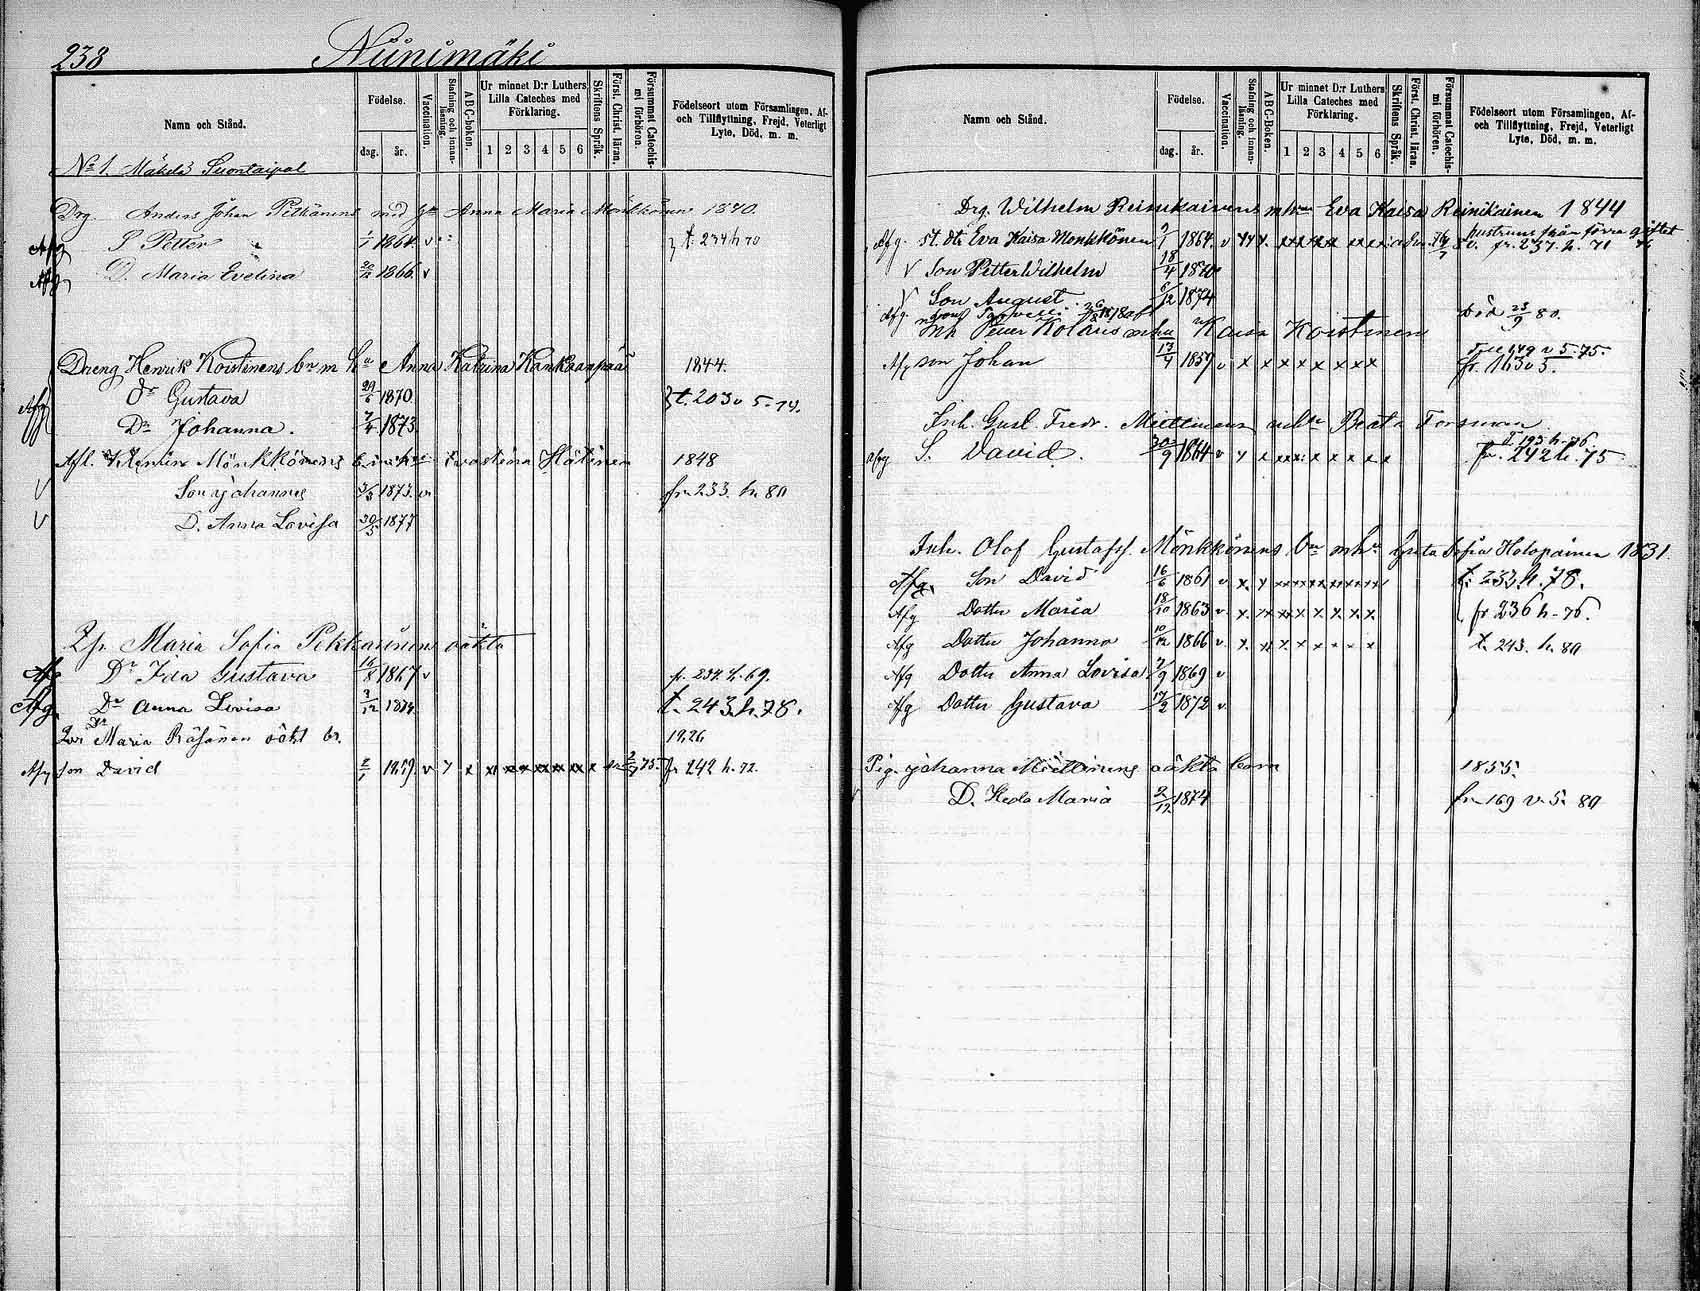 238 Niinimäki
Namn och Stånd.
Födelse.
dag. år.
Vaccination.
Stafning och innanläsning.
A B C-boken.
Ur minnet D:r Luthers Lilla Cateches med Förklaring.
1 2 3 4 5 6
Skriftens Språk.
Först. Christ. läran.
Försummat Catechismi förhören.
Födelseort utom Församlingen, Af- och Tillflyttning, Frejd, Veterligt Lyte, Död, m. m.
No 1. Mäkelä Suontaipal
Drg. Anders Johan Pitkänens med hu Anna Maria Mönkkönen 1840.
Afg S Petter 1/1 1864. v t. 234 h 70
Afg D. Maria Evelina 1866. v
Dreng Henrik Koistinens br m hu Anna Katrina Kankaanpää 1844.
Afg Dr Gustava 29/6 1870. t. 203 v 5-74.
Dr Johanna. 7/4 1873
Mönkkönens Hätinen 1848
V Son Johannes 1873. v fr. 233. h. 80
V D. Anna Lovisa 30/3 1877
Maria Sofia Pekkarinens oäkta
Afg Dr Ida Gustava 16/8 1867 v fr. 234 h. 69.
Afg. Dr Anna Lovisa 3/12 1874. t. 243 h. 78.
Maria Räsänen oäkt br. 1826
Afg son David 2/1 1859. v x x x x x x x x 75. fr 242 h. 72.
Namn och Stånd.
Födelse.
dag. år.
Vaccination.
Stafning och innanläsning.
A B C-Boken.
Ur minnet D:r Luthers Lilla Cateches med Förklaring.
1 2 3 4 5 6
Skriftens Språk.
Först. Christ. läran.
Försummat Catechismi förhören.
Födelseort utom Församlingen, Af- och Tillflyttning, Frejd, Veterligt Lyte, Död, m. m.
Drg. Wilhelm Reinikainens m hu Eva Kaisa Reinikainen 1844
hustruns från förra giftet
Afg. st. dtr Eva Kaisa Monkkönen 1864. v fr. 237. h. 71
V Son Petter Wilhelm 18/4 1870
V Son August 6/12 1874
död 23/9 80.
Inh Petter Kolaris m hu Kaisa Koistinen
Afg son Johan 13/4 1859 v x x x x x x x x fr. 163 v 5.
Inh. Gust. Fredr. Miettinens m hu Beata Forsman
t 195 h-76
Afg S. David. 30/9 1864 v fr. 242 h. 75
Inh. Olof Gustafss. Mönkkönens br m hu Greta Sofia Holopainen 1831.
Afg. Son David 16/6 1861 v t. 232 h. 78.
Afg Dotter Maria 18/10 1863 v fr 236 h-76.
Afg Dotter Johanna 10/12 1866 v t. 243. h. 80
Afg Dotter Anna Lovisa 7/9 1869 v
Afg Dotter Gustava 17/2 1872 v
Pig. Johanna Miettinens oäkta barn 1855.
D. Heda Maria 2/12 1874 fr. 169 v. 5. 80